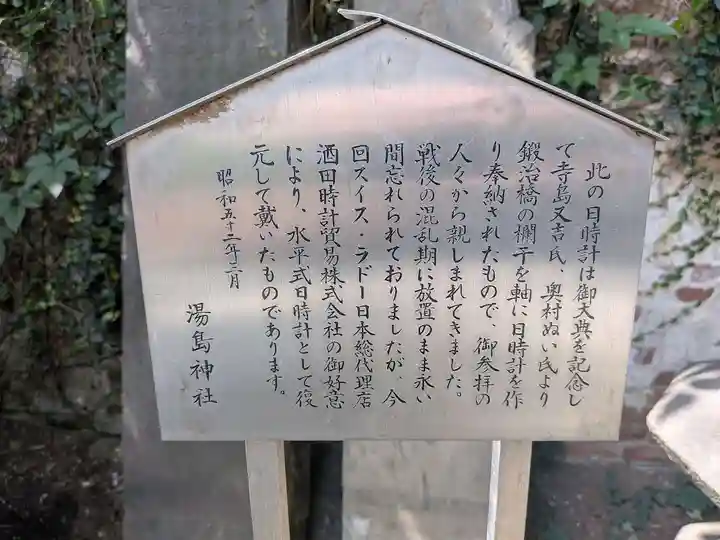 此の日時計は御大典を記念し
て寺島又吉氏、奥村ぬい氏より
鍛治橋の欄干を軸に日時計を作
り奉納されたもので、御参拝の
人々から親しまれてきました。
戦後の混乱期に放置のまま永い
間忘れられておりましたが、今
回スイス・ラドー日本総代理店
酒田時計貿易株式会社の御好意
により、水平式日時計として復
元して戴いたものであります。
昭和五十二年三月
湯島神社